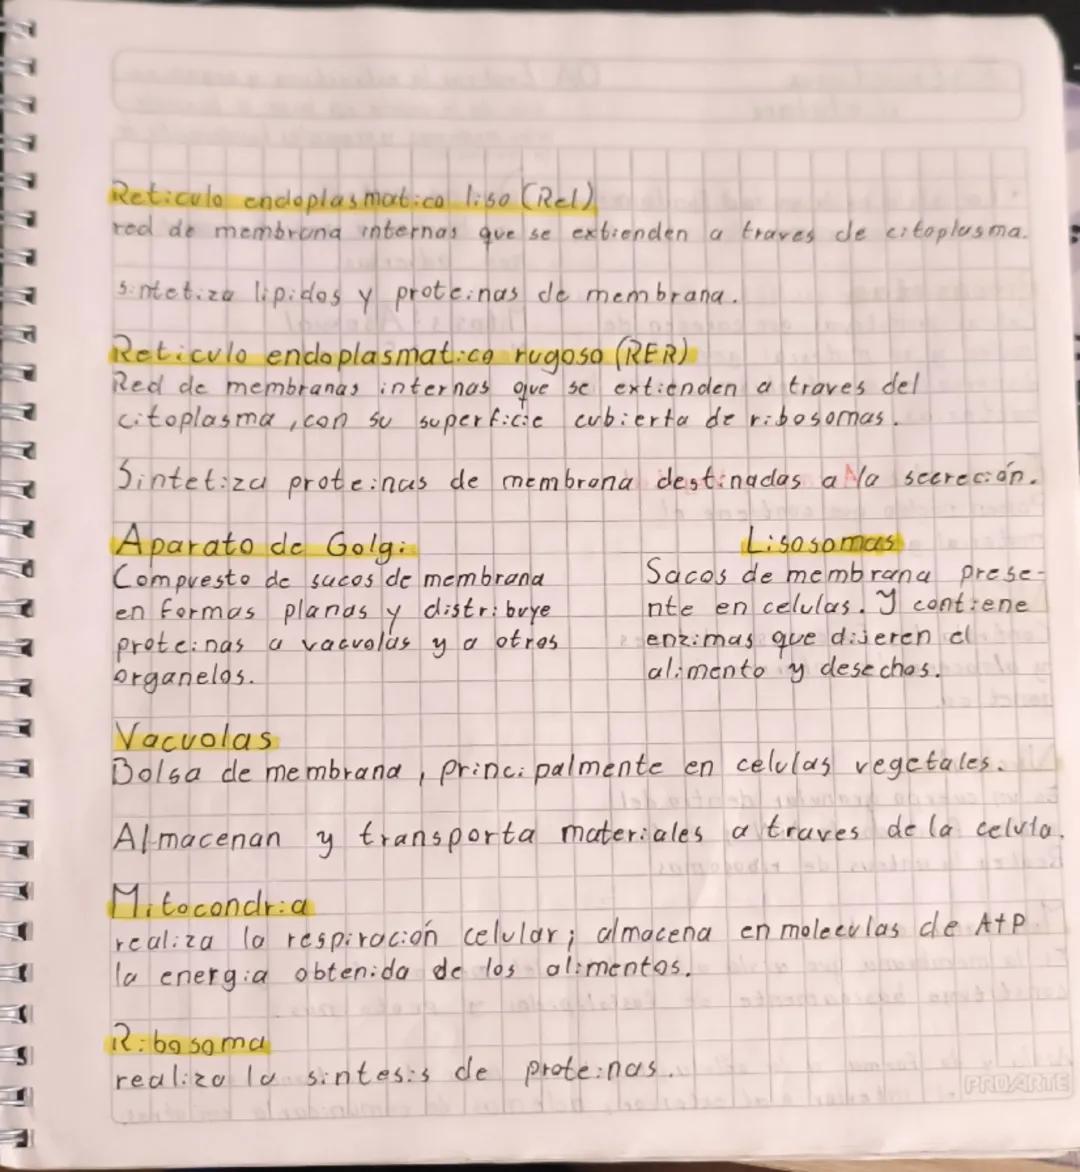 Reticulo endoplasmatico liso (Rel)
red de membrana internas que se extienden a traves de citoplasma.
sintetiza lipidos y proteinas de membrana.
Reticulo endoplasmatico rugoso (RER)
Red de membranas internas que se extienden a traves del
citoplasma, con su superficie cubierta de ribosomas.
Sintetiza proteinas de membrana destinadas a la secreción.
Aparato de Golgi
Compuesto de sacos de membrana
en formas planas y distribuye
proteinas a vacuolas y a otros
organelos.
Lisosomas
Sacos de membrana prese-
nte en celulas. Y contiene
enzimas que dijeren el
alimento y desechos.
Vacuolas
Bolsa de membrana, principalmente en celulas vegetales.
Almacenan y transporta materiales a traves de la celula.
Mitocondria
realiza la respiración celular; almacena en moleculas de AtP
la energia obtenida de los alimentos.
Ribosoma
realiza la sintesis de proteinas.
PROARTE